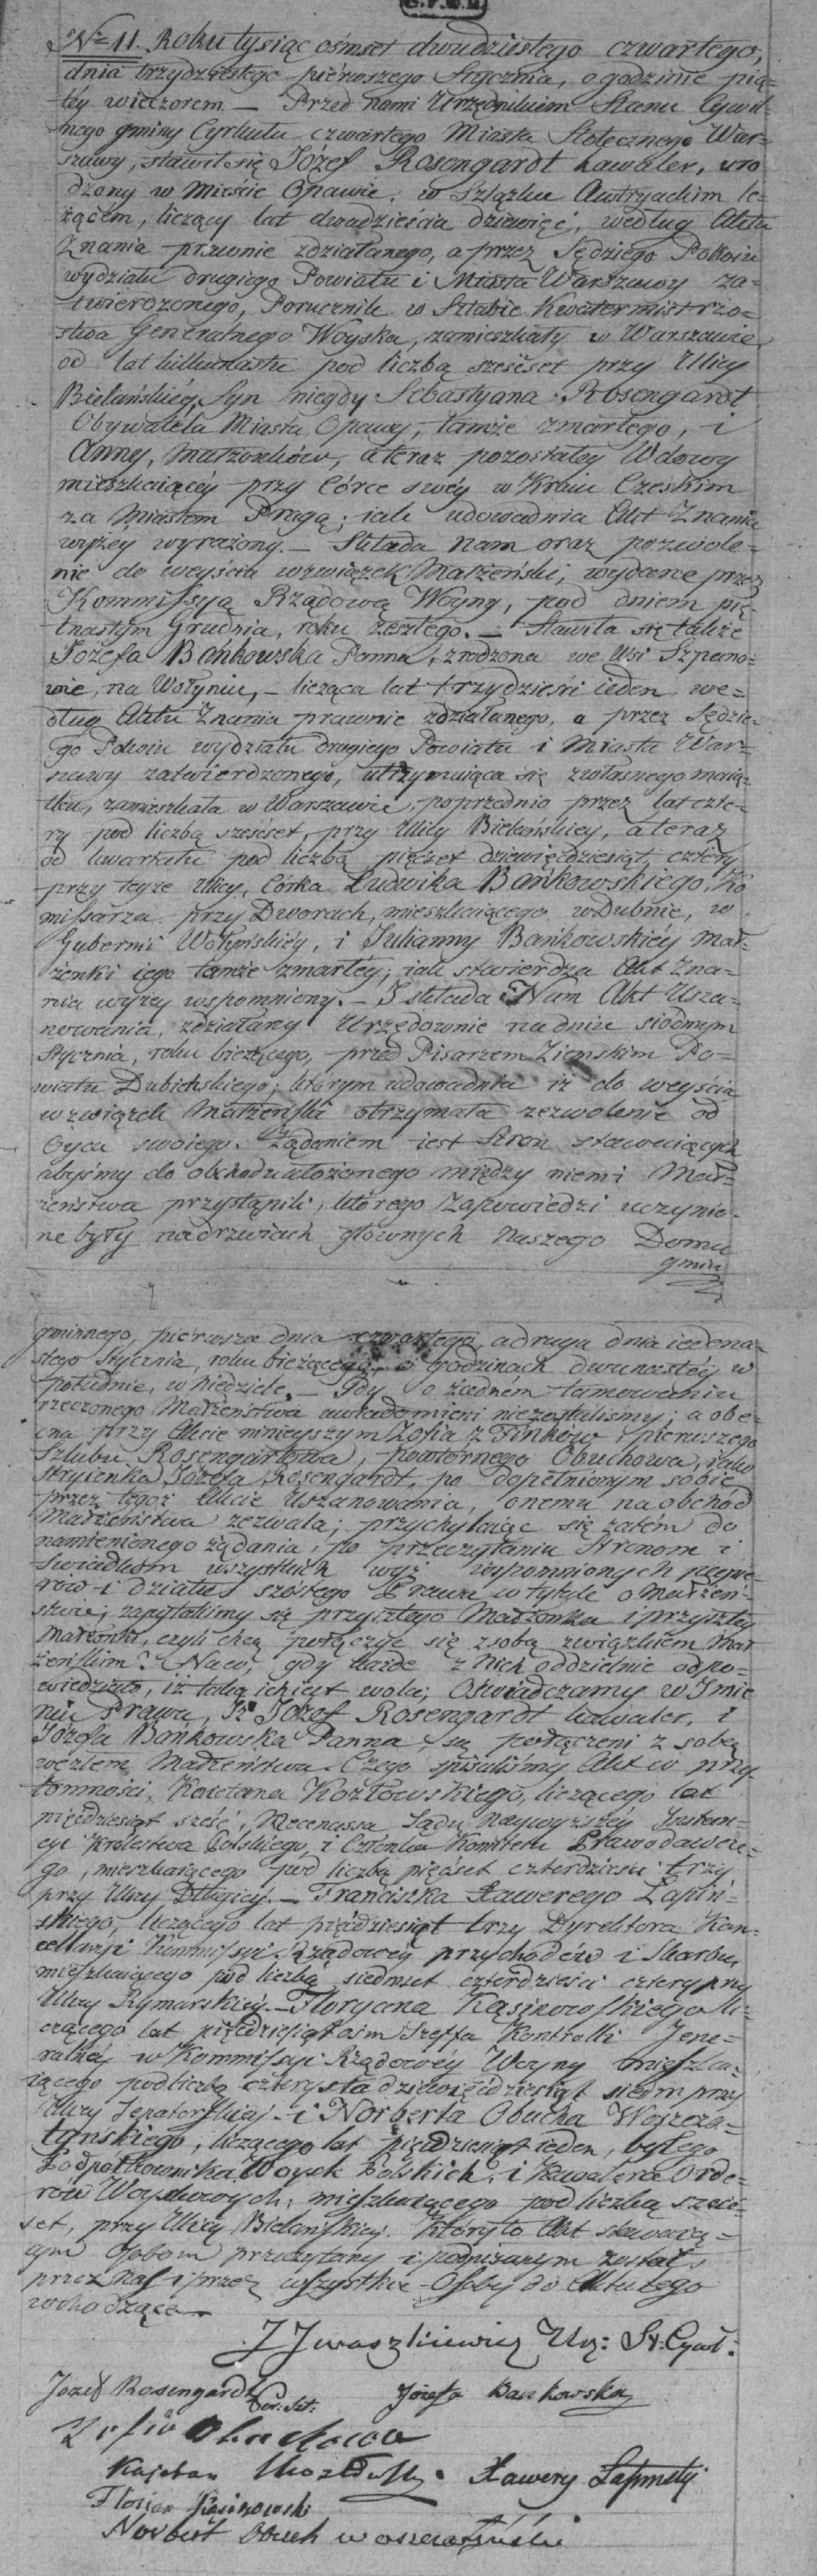 N= 11. Roku tysiąc ośmset dwudziestego czwartego,
dnia trzydziestego piérwszego Stycznia, o godzinie pią-
téy wieczorem — Przed Nami Urzędnikiem Stanu Cywil-
nego gminy Cyrkułu czwartego Miasta Stołecznego War-
szawy, stawił się Józef Rosengardt kawaler, uro
dzony w Mieście Opawie, w Szląsku Austryackim le-
żącém, liczący lat dwadzieścia dziewięć, według Aktu
Znania prawnie zdziałanego, a przez Sędziego Pokoiu
wydziału drugiego Powiatu i Miasta Warszawy za-
twierdzonego, Porucznik w Sztabie Kwatermistrzo-
stwa Generalnego Woyska, zamieszkały w Warszawie
od lat kilkunastu pod liczbą sześćset przy Ulicy
Bielańskiéy, Syn niegdy Sebastyana Rosengardt
Obywatela Miasta Opawy, tamże zmarłego, i
Anny, Małżonków, a teraz pozostałéy Wdowy
mieszkaiącéy przy Córce swéy w Kraiu Czeskim
za Miastem Pragą; iak udowadnia Akt Znania
wyżey wyrażony. — Składa Nam oraz pozwole-
nie do weyścia w związek Małżeński, wydane przez
Kommissyą Rządową Woyny, pod dniem pię-
tnastym Grudnia, roku zeszłego. — Stawiła się także
Józefa Bańkowska Panna, zrodzona we Wsi Szpano-
wie, na Wołyniu, — licząca lat trzydzieści ieden we-
dług Aktu Znania prawnie zdziałanego, a przez Sędzie-
go Pokoiu wydziału drugiego Powiatu i Miasta War-
szawy zatwierdzonego, utrzymuiąca się z własnego maią-
tku, zamieszkała w Warszawie, poprzednio przez lat czte-
ry pod liczbą sześćset, przy Ulicy Bielańskiey, a teraz
od kwartału pod liczbą pięćset dziewięćdziesiąt cztery
przy teyże Ulicy, Córka Ludwika Bańkowskiego, Ko
missarza przy Dworach, mieszkaiącego w Dubnie, w
Gubernii Wołyńskiéy, i Julianny Bańkowskiéy Mał-
żonki iego tamże zmarłéy; iak stwierdza Akt Zna-
nia wyżey wspomniony. — I składa Nam Akt Usza-
nowania, zdziałany Urzędownie na dniu siódmym
Stycznia, roku bieżącego, przed Pisarzem Ziemskim Po-
wiatu Dubieńskiego; którym udowadnia iż do weyścia
w związek Małżeński otrzymała zezwolenie od
Oyca swoiego. Żądaniem iest Stron stawaiących
abyśmy do obchodu ułożonego między niemi Mał-
żeństwa przystąpili, którego Zapowiedzi uczynio-
ne były na drzwiach głównych Naszego Domu
gmin
gminnego, pierwsza dnia czwartego, a druga dnia iedena-
stego Stycznia, roku bieżącego, o Godzinach dwunastéy w
południe, w Niedziele. — Gdy o żadném tamowaniu
rzeczonego Małżeństwa uwiadomieni nie zostaliśmy; a obe-
cna przy Akcie ninieyszym Zofia z Finków, pierwszego
Szlubu Rosengartowa, powtórnego Obuchowa, iako
Stryienka Józefa Rosengardt, po dopełnionym sobie
przez tegoż Akcie Uszanowania, onemu na obchód
Małżeństwa zezwala; przychylaiąc się zatém do
namienionego żądania, po przeczytaniu Stronom i
Świadkom wszystkich wyż wspomnionych papie-
rów i działu szóstego Prawa w tytule o Małżeń-
stwie; zapytaliśmy się przyszłego Małżonka i przyszłéy
Małżonki, czyli chcą połączyć się z sobą związkiem Mał
żeńskim? Na co, gdy każde z Nich oddzielnie odpo-
wiedziało, iż taka ich iest wola; Oświadczamy w Imie
niu Prawa, Iż Józef Rosengardt kawaler, i
Józefa Bańkowska Panna, są połączeni z sobą
węzłem Małżeństwa. Czego spisaliśmy Akt w przy-
tomności, Kaietana Kozłowskiego, liczącego lat
pięćdziesiąt sześć, Mecenassa Sądu Naywyższéy Instan-
cyi Królestwa Polskiego, i Członka Komitetu Prawodawcze-
go, mieszkaiącego pod liczbą pięćset czterdzieści trzy
przy Ulicy Długiey. — Franciszka Xawerego Łapiń-
skiego, liczącego lat pięćdziesiąt trzy Dyrektora Kan-
cellaryi Kommissyi Rządowéy przychodów i Skarbu,
mieszkaiącego pod liczbą siedmset czterdzieści cztery przy
Ulicy Rymarskiéy. — Floryana Kąsinowskiego li-
czącego lat pięćdziesiąt ośm Szeffa Kontrolli Jene-
ralnéy w Kommissyi Rządowéy Woyny mieszka-
iącego pod liczbą czterysta dziewięćdziesiąt siedm przy
Ulicy Senatorskiey — i Norberta Obucha Woszcza-
tyńskiego, liczącego lat pięćdziesiąt ieden, byłego
Podpółkownika Woysk Polskich, i Kawalera Orde-
rów Woyskowych, mieszkaiącego pod liczbą sześć-
set, przy Ulicy Bielańskiey. Któryto Akt stawaią-
cym Osobom przeczytany i podpisanym został,
przez Nas i przez wszystkie Osoby do Aktu tego
wchodzące.
J Jwaszkiewicz Urz: St: Cywil:
Józef Rosengardt Por: Szt: Józefa Bankowska
Zofia Obuchowa
Kajetan Kozłowski Xawery Łapinski
Floryan Kąsinowski
Norbert Obuch Woszczatyński